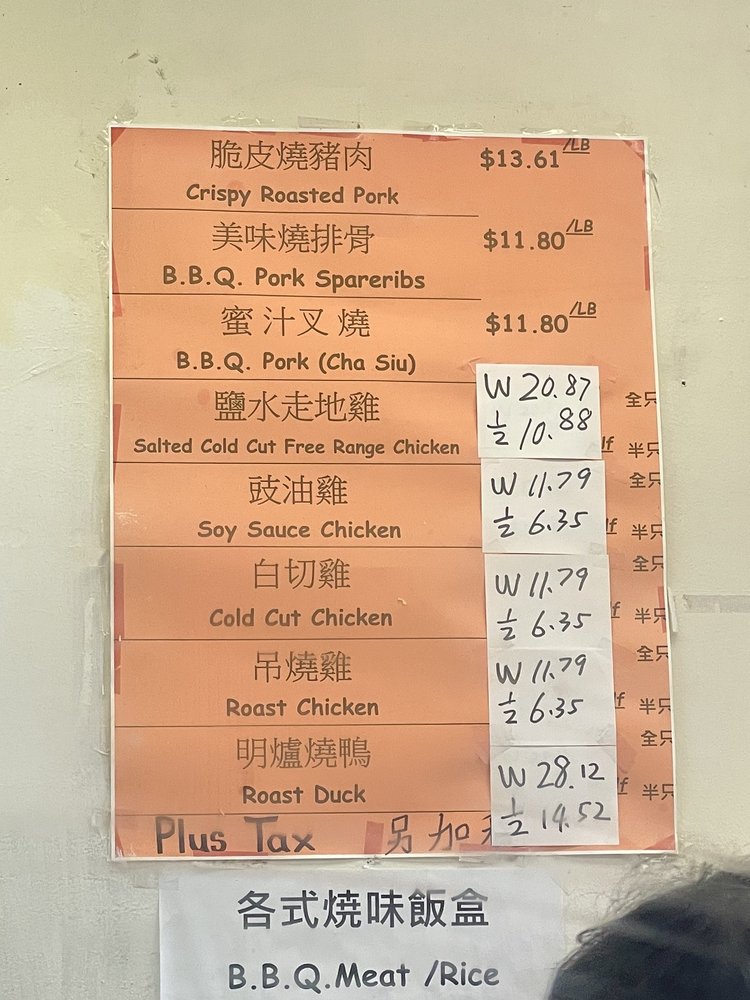 脆皮燒豬肉 $13.61/LB
Crispy Roasted Pork
美味燒排骨 $11.80/LB
B.B.Q. Pork Spareribs
蜜汁叉燒 $11.80/LB
B.B.Q. Pork (Cha Siu)
鹽水走地雞 W 20.87 全只
Salted Cold Cut Free Range Chicken ½ 10.88 lf 半只
豉油雞 W 11.79 全只
Soy Sauce Chicken ½ 6.35 lf 半只
白切雞 W 11.79 全只
Cold Cut Chicken ½ 6.35 lf 半只
吊燒雞 W 11.79 全只
Roast Chicken ½ 6.35 lf 半只
明爐燒鴨 W 28.12 全只
Roast Duck ½ 14.52 lf 半只
Plus Tax 另加
各式燒味飯盒
B.B.Q.Meat /Rice